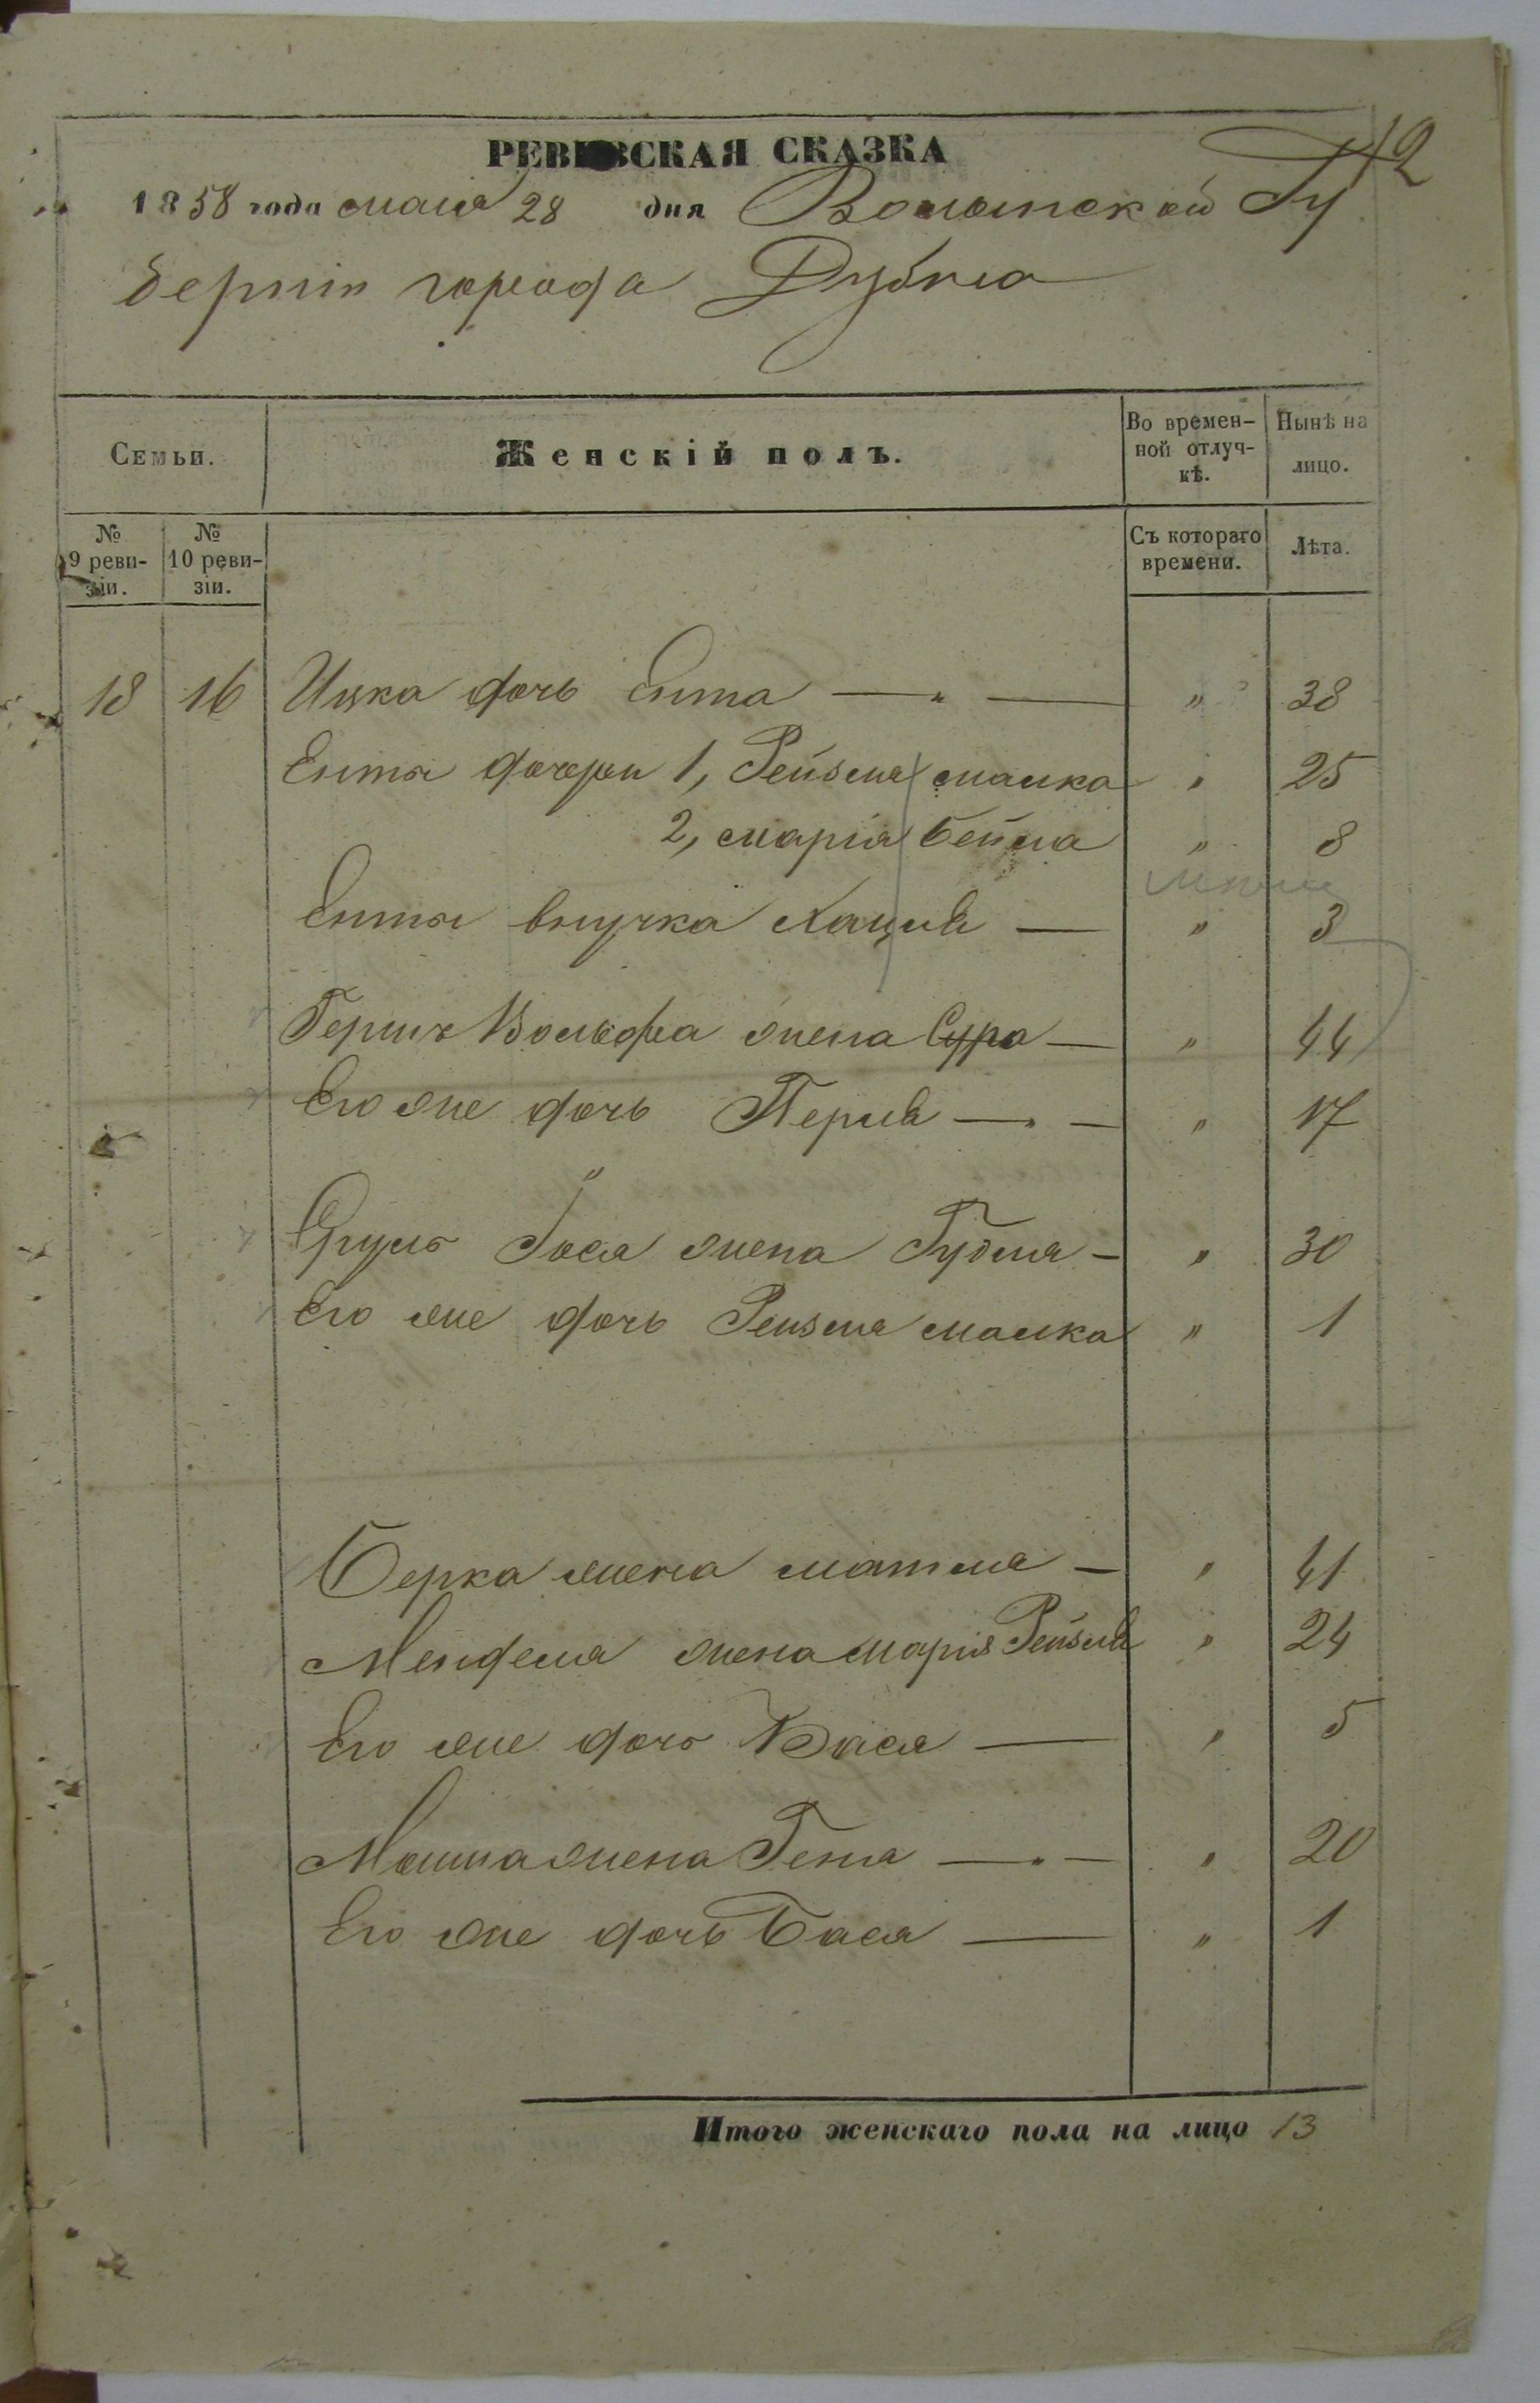 РЕВИЗСКАЯ СКАЗКА
42
1858 года мая 28 дня Волынской Гу
берніи города Дубно
Семьи.
Женскій полъ.
Во времен-
ной отлуч-
кѣ.
Нынѣ на
лицо.
№
9 реви-
зіи.
№
10 реви-
зіи.
Съ котораго
времени.
Лѣта.
18 16 Ицка дочь Ента — „ — „ 38
Енты дочери 1, Рейзля малка „ 25
2, марія Бейла „ 8
Енты внучка Хацля — „ 3
Гершъ Вольфа жена Сура — „ 44
Его же дочь Перля — „ 17
Сруль Іося жена Гудля — „ 30
Его же дочь Рейзля малка „ 1
Берка жена матля — „ 41
Менделя жена марія Рейзля „ 24
Его же дочь Бася — „ 5
Мошка жена Геня — „ 20
Его же дочь Бася — „ 1
Итого женскаго пола на лицо 13